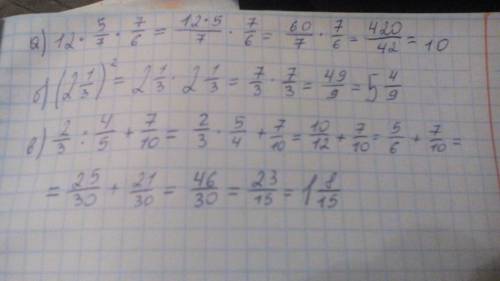 а) 12 · 5/7 · 7/6 = 12·5/7 · 7/6 = 60/7 · 7/6 = 420/42 = 10
б) (2 1/3)² = 2 1/3 · 2 1/3 = 7/3 · 7/3 = 49/9 = 5 4/9
в) 2/3 : 4/5 + 7/10 = 2/3 · 5/4 + 7/10 = 10/12 + 7/10 = 5/6 + 7/10 =
= 25/30 + 21/30 = 46/30 = 23/15 = 1 8/15